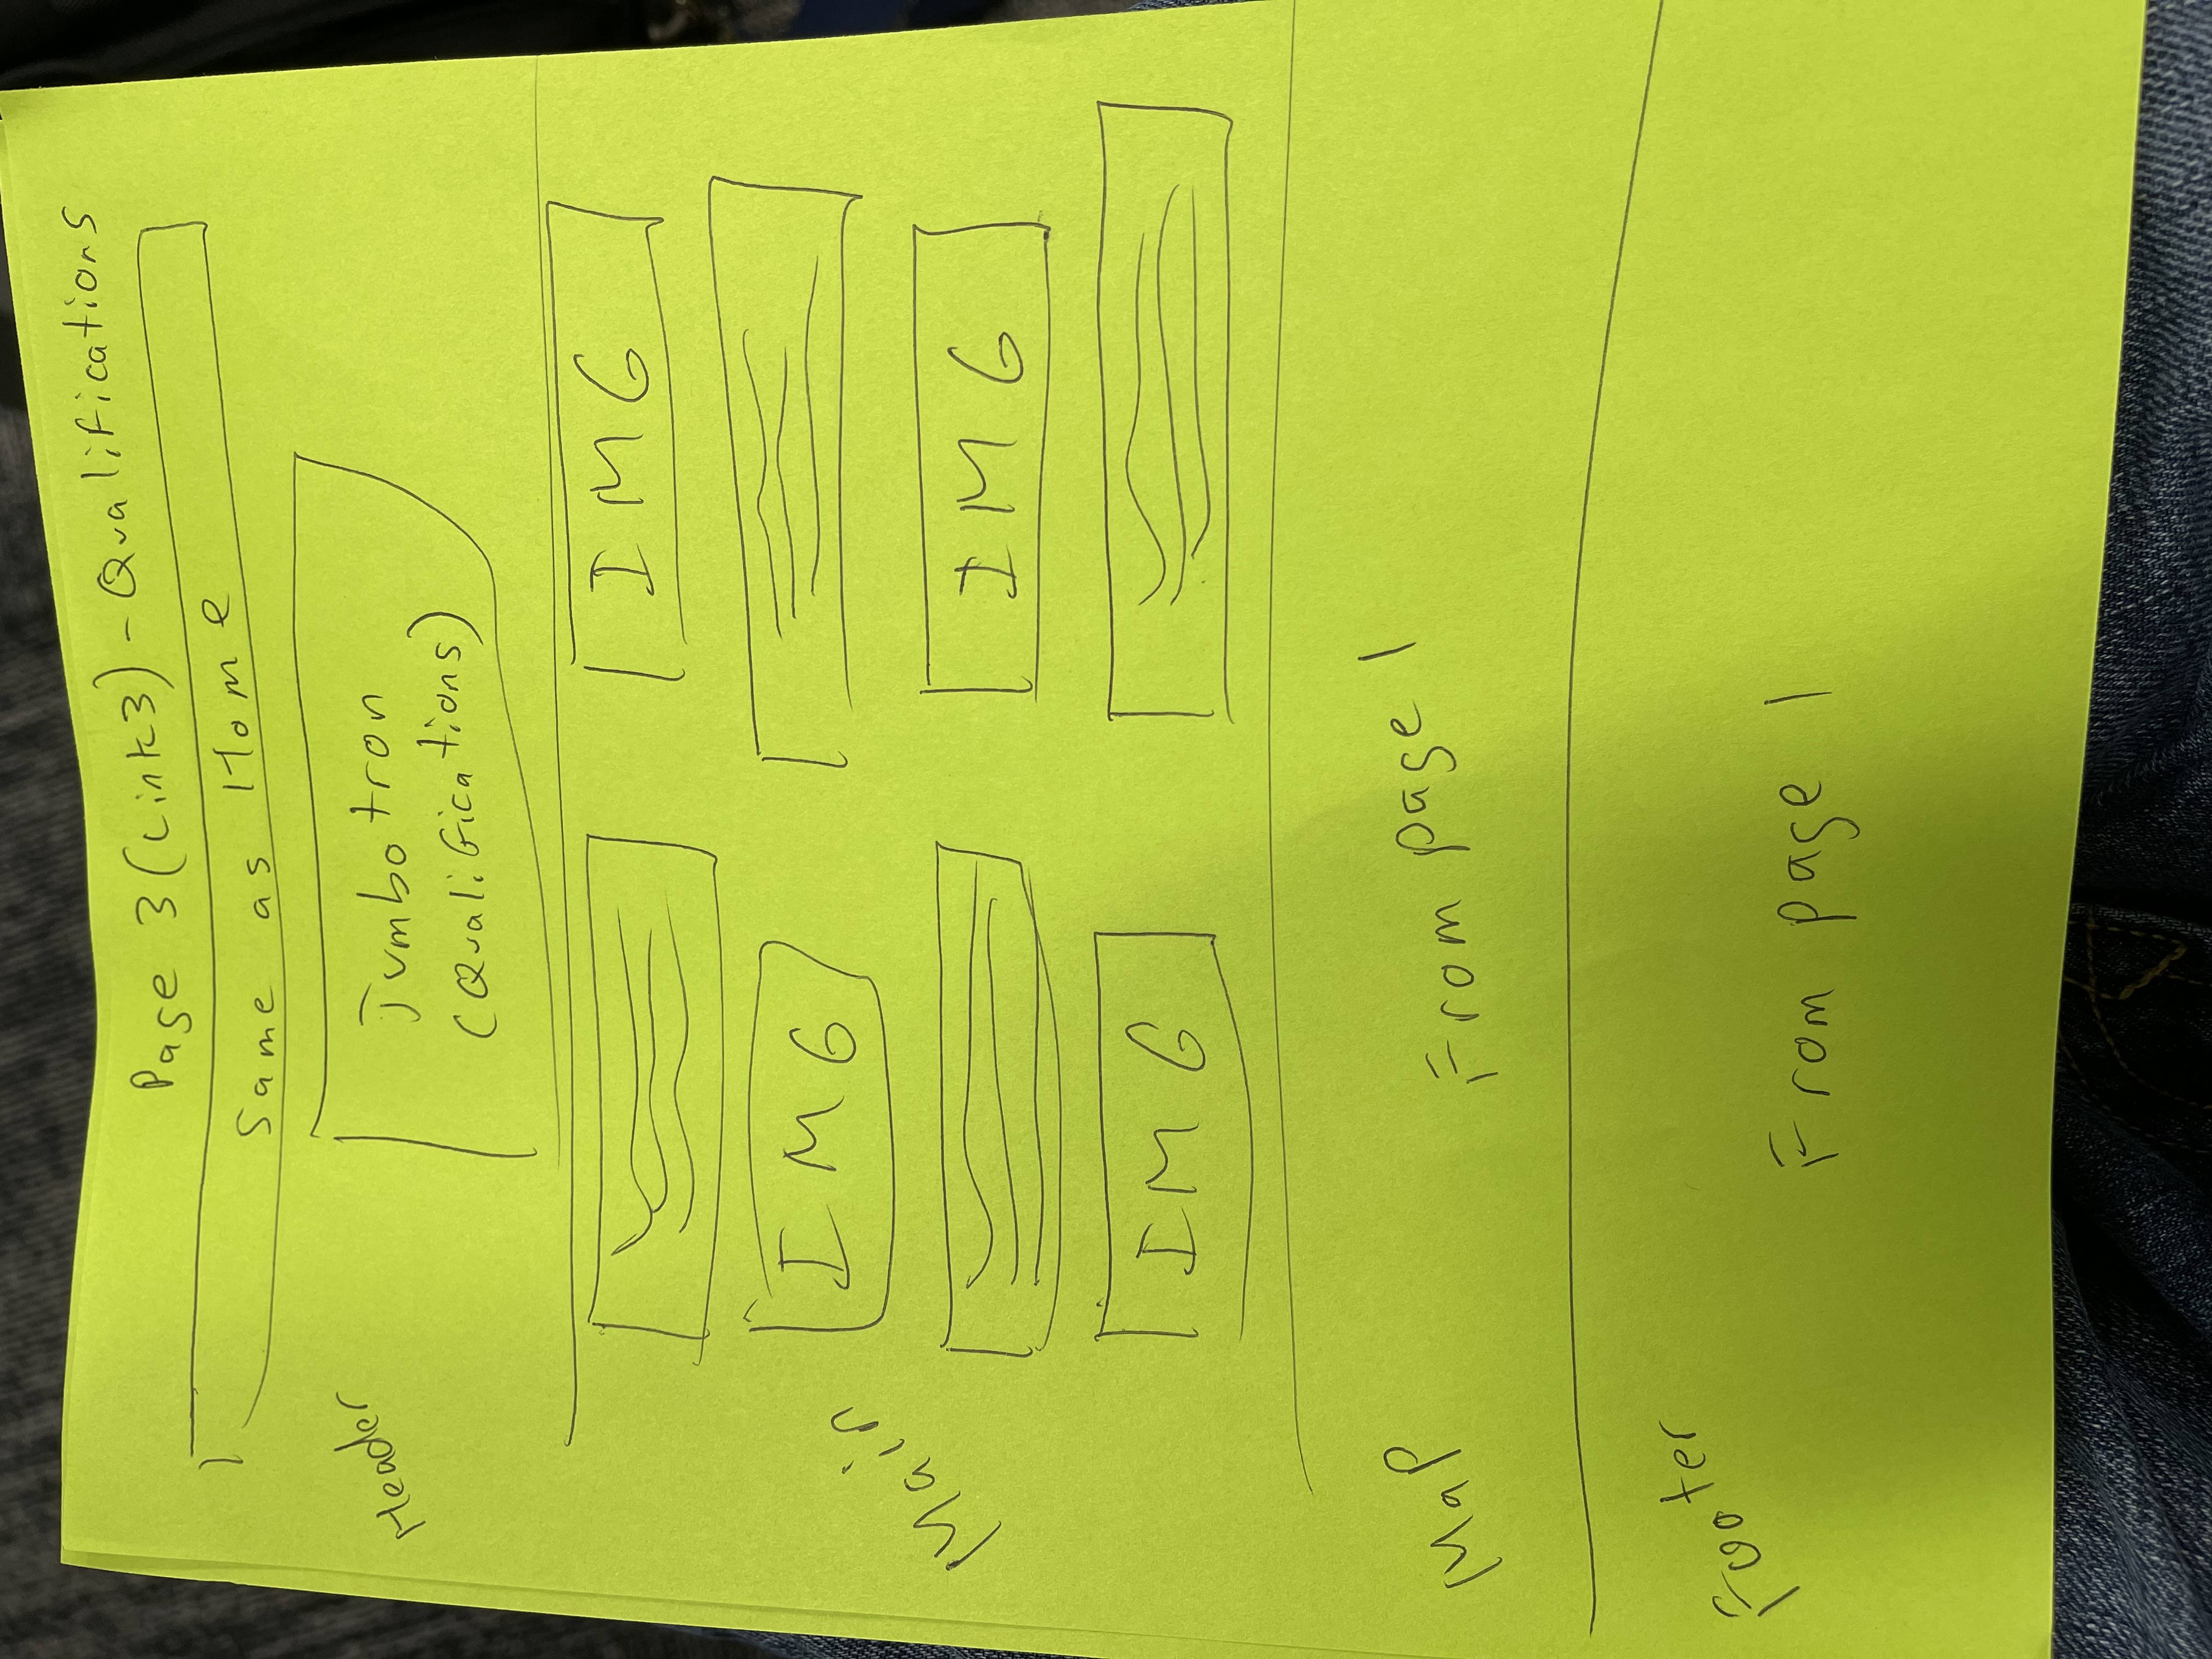 Page 3 (Link3) - Qualifications
Same as Home
Header
Jumbotron
(Qualifications)
IMG
Main
IMG
IMG
IMG
Map
From page 1
Footer
From page 1